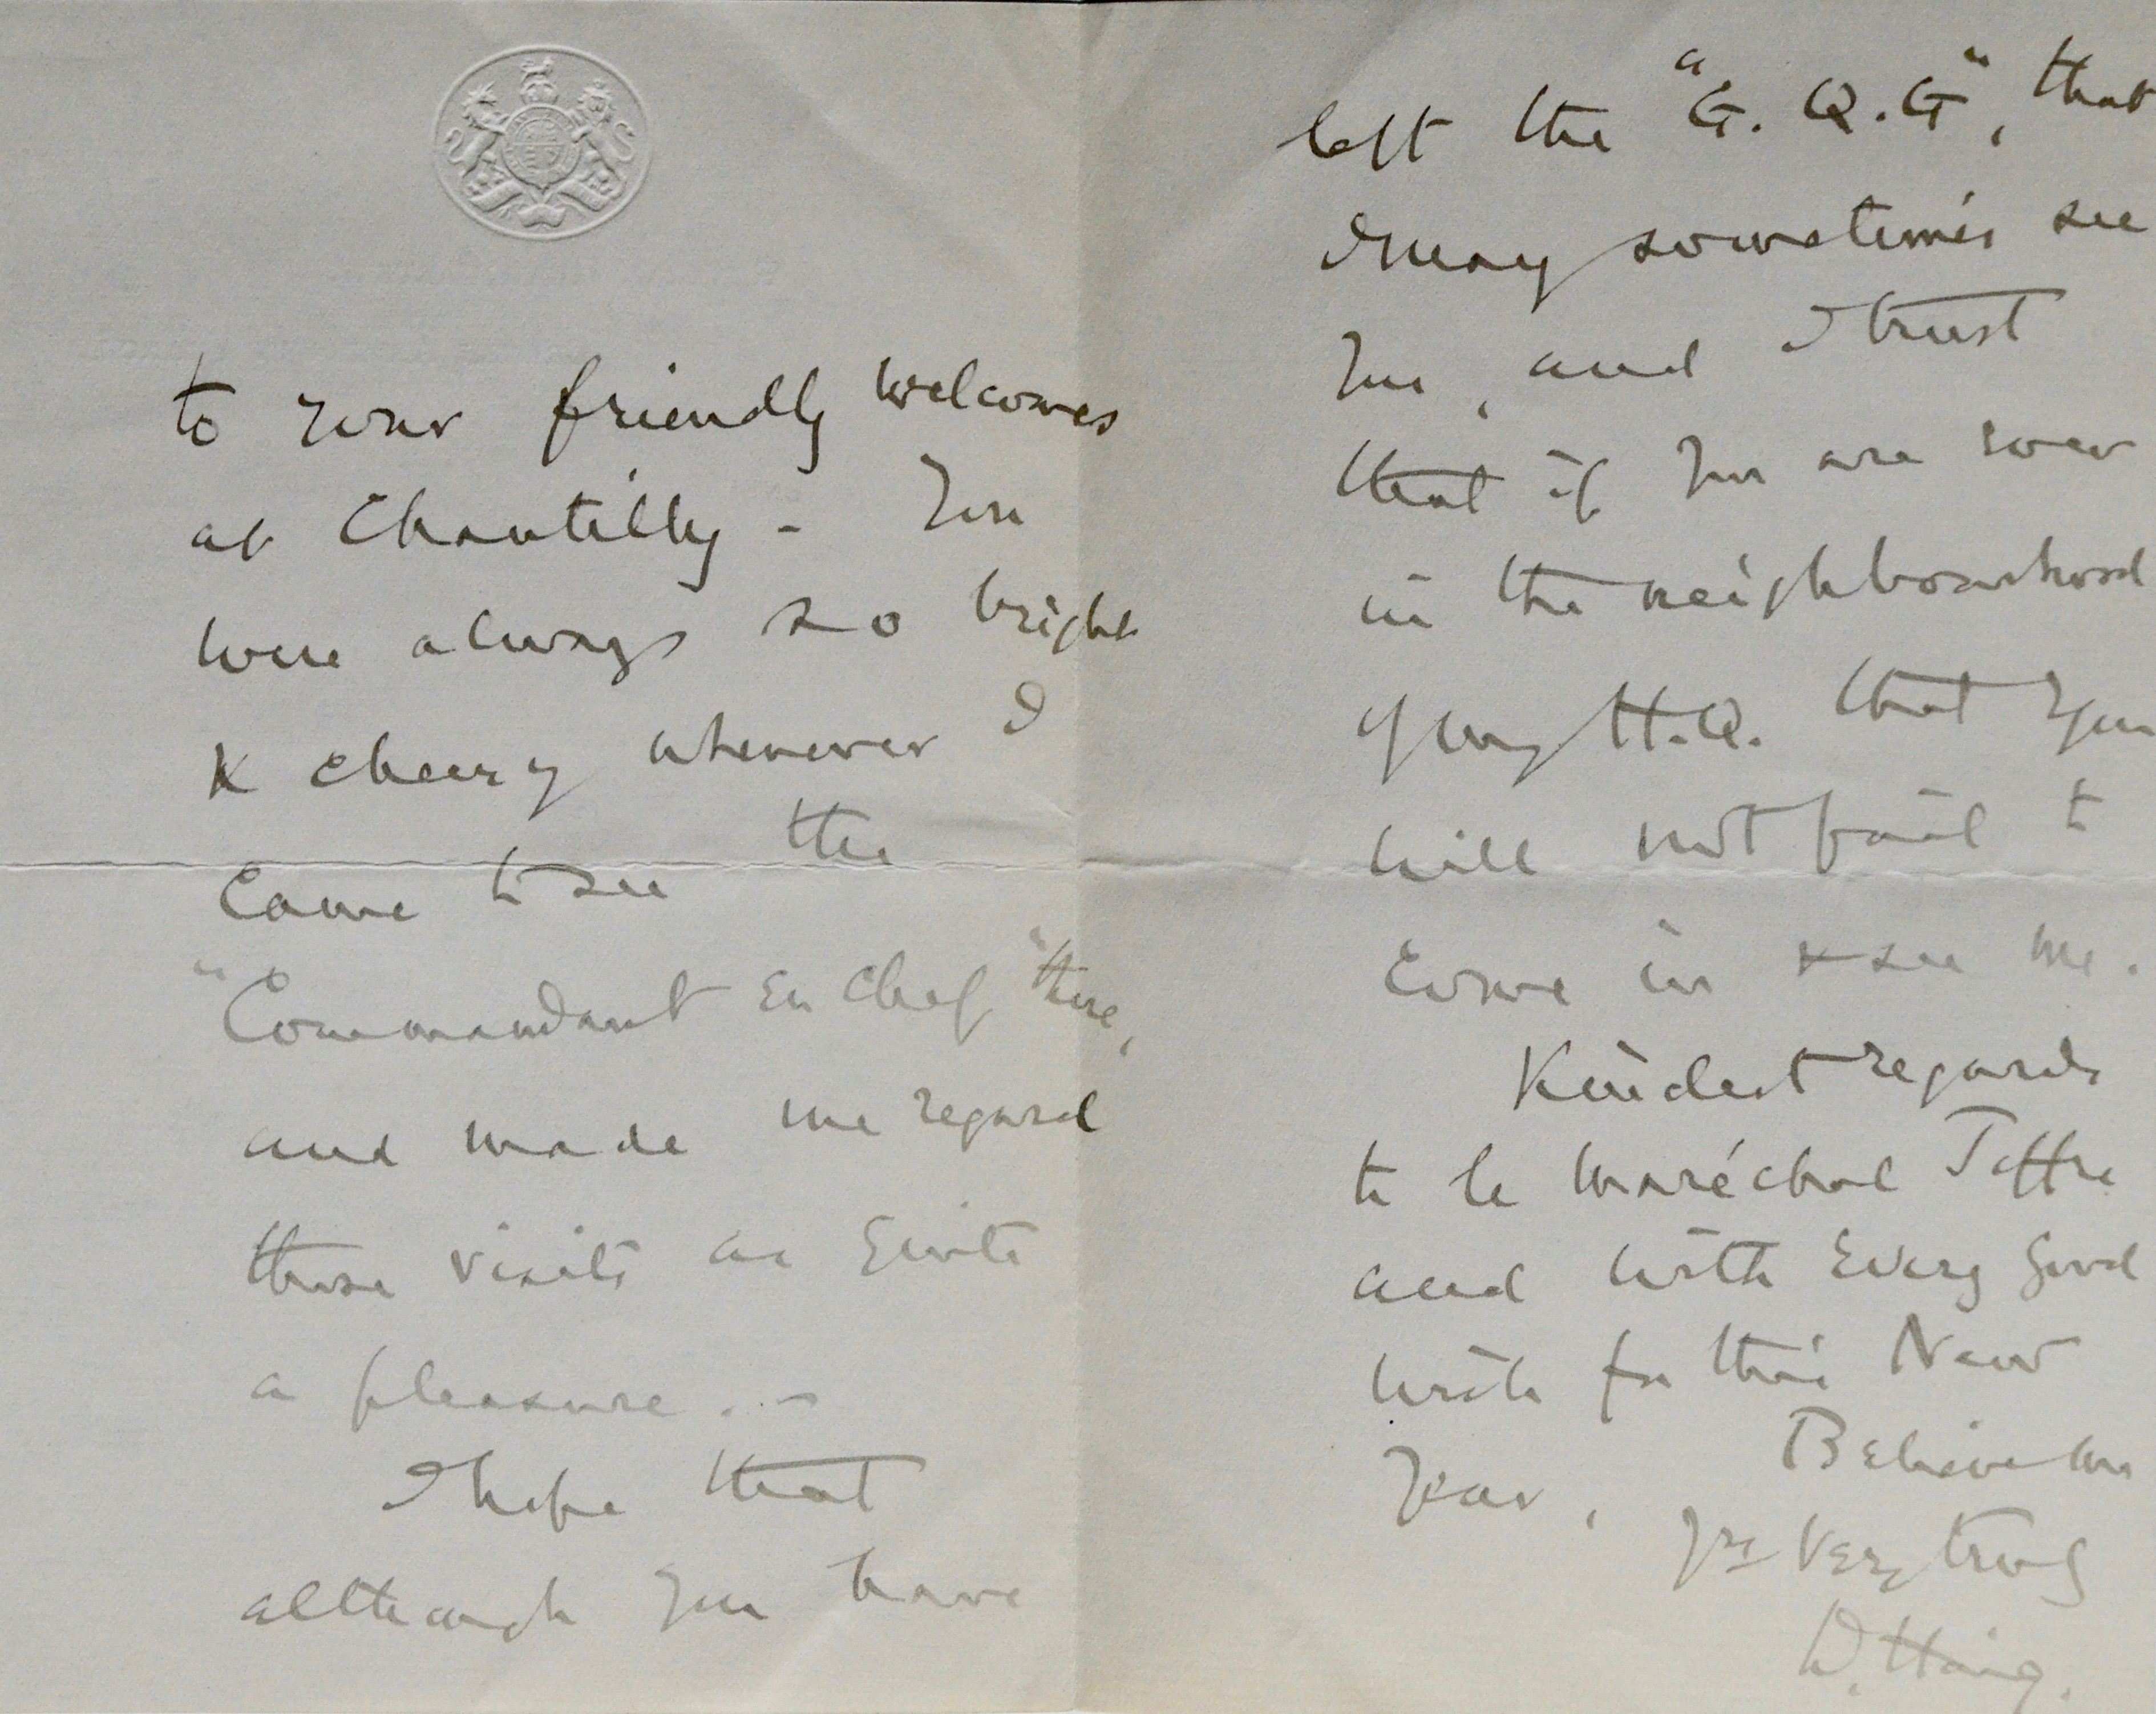 to your friendly welcomes
at Chantilly - You
were always so bright
& cheery whenever I
came to see the
"Commandant en Chef" there,
and made me regard
those visits as quite
a pleasure. -
I hope that
although you have
left the "G. Q. G", that
I may sometimes see
you, and I trust
that if you are ever
in the neighbourhood
of my H.Q. that you
will not fail to
come in & see me.
Kindest regards
to le Maréchal Joffre
and with every good
wish for this New
Year, Believe me
Yrs very truly
D. Haig.